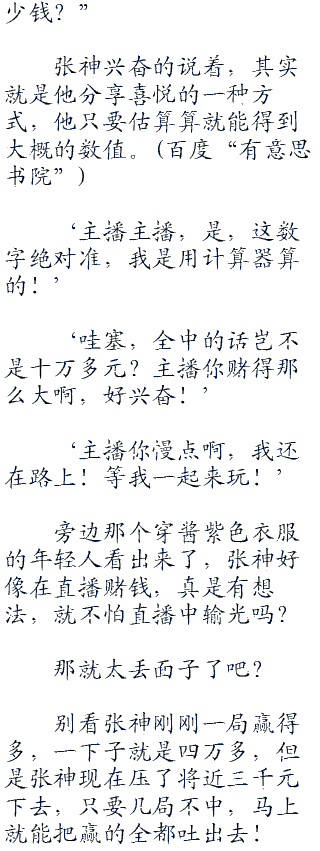 少钱？”
张神兴奋的说着，其实
就是他分享喜悦的一种方
式，他只要估算算就能得到
大概的数值。(百度“有意思
书院”)
‘主播主播，是，这数
字绝对准，我是用计算器算
的！’
‘哇塞，全中的话岂不
是十万多元？主播你赌得那
么大啊，好兴奋！’
‘主播你漫点啊，我还
在路上！等我一起来玩！’
旁边那个穿酱紫色衣服
的年轻人看出来了，张神好
像在直播赌钱，真是有想
法，就不怕直播中输光吗？
那就太丢面子了吧？
别看张神刚刚一局赢得
多，一下子就是四万多，但
是张神现在压了将近三千元
下去，只要几局不中，马上
就能把赢的全都吐出去！